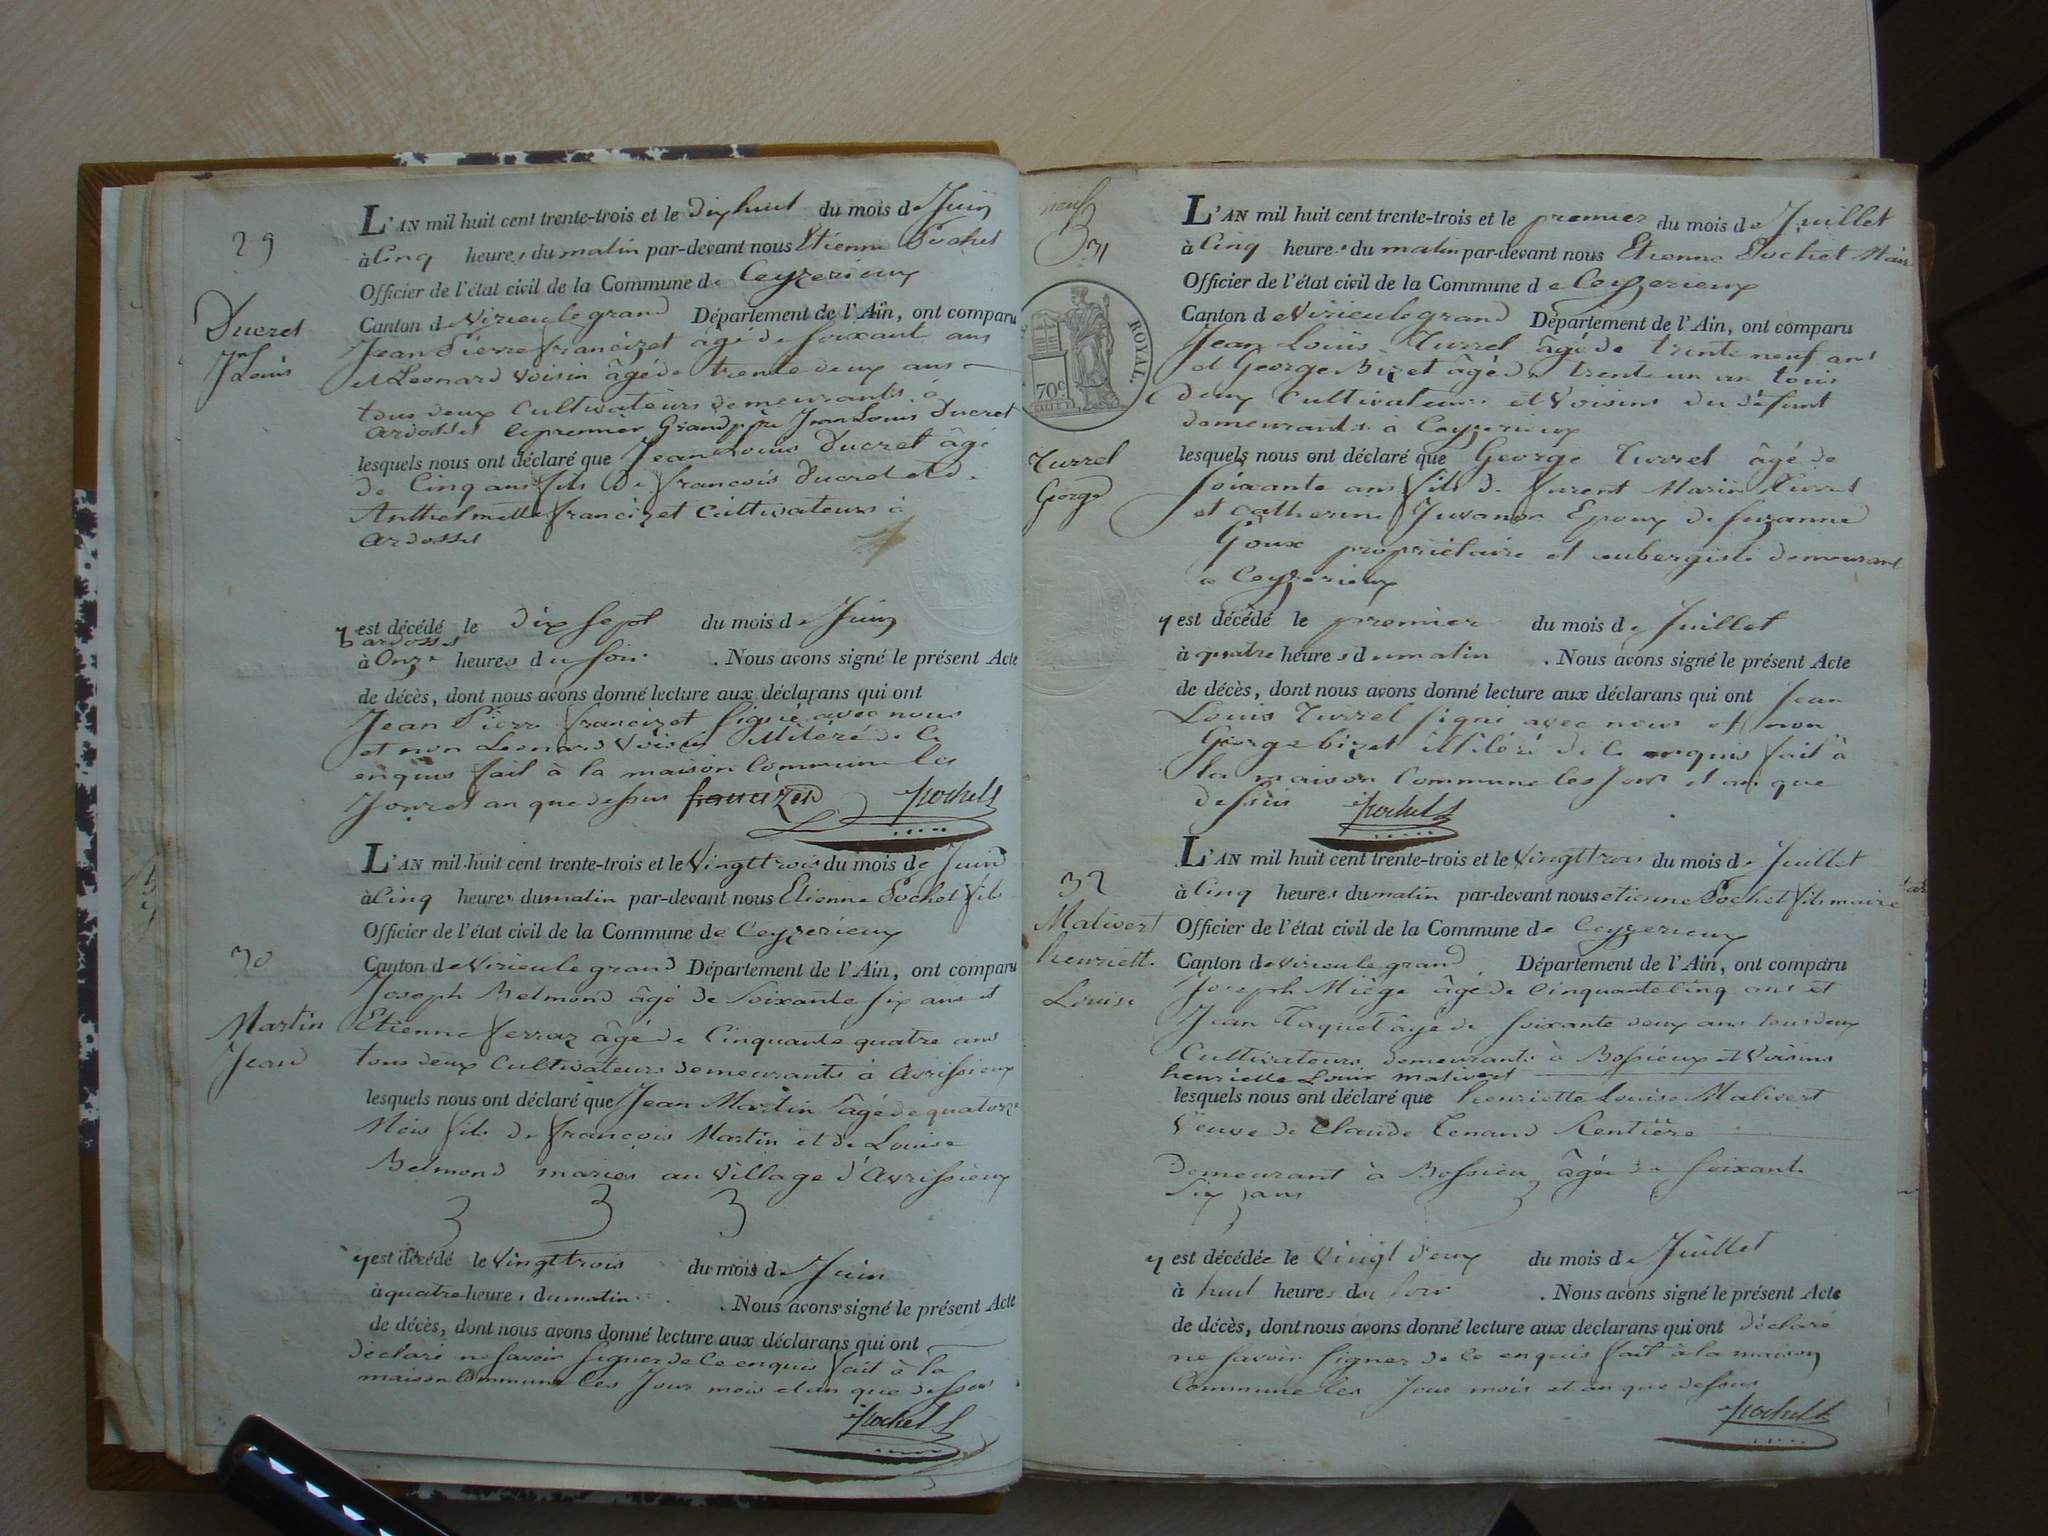 29
Ducret
Jn Louis
L'AN mil huit cent trente-trois et le dix huit du mois de Juin
à Cinq heures du matin par-devant nous Etienne Pochet
Officier de l'état civil de la Commune de Ceyzerieux
Canton de Virieu le grand Département de l'Ain, ont comparu
Jean Pierre francizet âgé de soixante ans
et Leonard Voisin âgé de trente deux ans
tous deux Cultivateurs demeurants à
ardosset le premier Grand père Jean Louis Ducret
lesquels nous ont déclaré que Jean Louis Ducret âgé
de Cinq ans fils de francois Ducret et d.
Anthelmette francizet Cultivateurs à
ardosset
y est décédé le dix sept du mois de Juin
ardosset
à Onze heures du soir . Nous avons signé le présent Acte
de décès, dont nous avons donné lecture aux déclarans qui ont
Jean Pierre francizet signé avec nous
et non Leonard Voisin illiteré de ce
enquis fait à la maison Commune les
Jour et an que dessus francizet Pochet
L'AN mil huit cent trente-trois et le Vingt trois du mois de Juin
à Cinq heures du matin par-devant nous Etienne Pochet fils
Officier de l'état civil de la Commune de Ceyzerieux
30
Martin
Jean
Canton de Virieu le grand Département de l'Ain, ont comparu
Joseph Belmond âgé de Soixante six ans et
Etienne ferraz âgé de Cinquante quatre ans
tous deux Cultivateurs demeurants à Avrissieux
lesquels nous ont déclaré que Jean Martin âgé de quatorze
Mois fils de françois Martin et de Louise
Belmond mariés au Village d'Avrissieux
y est décédé le Vingt trois du mois de Juin
à quatre heures du matin . Nous avons signé le présent Acte
de décès, dont nous avons donné lecture aux déclarans qui ont
déclaré ne savoir signer de Ce enquis fait à la
maison Commune les Jour mois et an que dessus
Pochet
neuf
31
ROYAL.
70 c
Turrel
George
L'AN mil huit cent trente-trois et le premier du mois de Juillet
à Cinq heures du matin par-devant nous Etienne Pochet Maire
Officier de l'état civil de la Commune de Ceyzerieux
Canton de Virieu le grand Département de l'Ain, ont comparu
Jean Louis Turrel âgé de trente neuf ans
et George Bizet âgé de trente un an tous
deux Cultivateurs et Voisins du défunt
demeurants à Ceyzerieux
lesquels nous ont déclaré que George Turrel âgé de
soixante ans fils de Marin Turrel
et Catherine Juvanon Epoux de suzanne
Goux propriétaire et aubergiste demeurant
a Ceyzerieux
y est décédé le premier du mois de Juillet
à quatre heures du matin . Nous avons signé le présent Acte
de décès, dont nous avons donné lecture aux déclarans qui ont Jean
Louis Turrel signé avec nous et non
George bizet illiteré de Ce enquis fait à
la maison Commune les Jour et an que
dessus Pochet
L'AN mil huit cent trente-trois et le Vingt trois du mois de Juillet
à Cinq heures du matin par-devant nous etienne Pochet fils maire
Officier de l'état civil de la Commune de Ceyzerieux
32
Malivert
henriette
Louise
Canton de Virieu le grand Département de l'Ain, ont comparu
Joseph Miége âgé de Cinquante Cinq ans et
Jean Taquet âgé de soixante deux ans tous deux
Cultivateurs demeurants à Bossieux et Voisins
henriette Louise malivert
lesquels nous ont déclaré que henriette Louise Malivert
Veuve de Claude Tenand Rentière
Demeurant à Bossieu âgée de soixante
six ans
y est décédée le vingt deux du mois de Juillet
à huit heures du soir . Nous avons signé le présent Acte
de décès, dont nous avons donné lecture aux déclarans qui ont déclaré
ne savoir signer de Ce enquis fait à la maison
Commune les Jour mois et an que dessus
Pochet